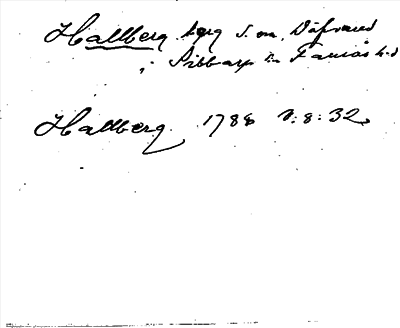 Hallberg berg S. om Döfvared
i Sibbarp sn Faurås hd
Hallberg. 1788 N: 8: 32.